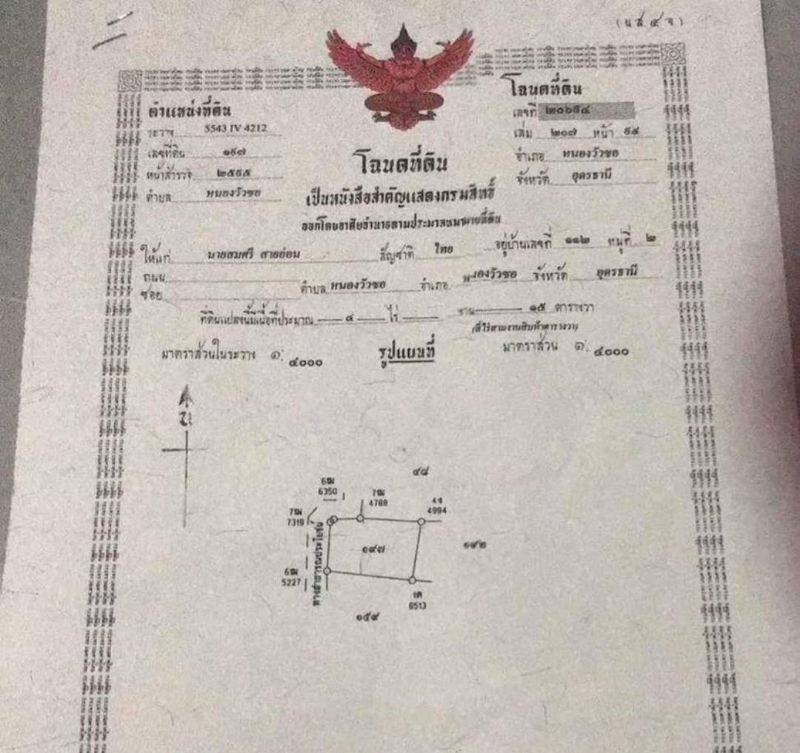 (น ส ๔ จ)
ตำแหน่งที่ดิน
ระวาง 5543 IV 4212
เลขที่ดิน ๑๙๗
หน้าสำรวจ ๒๕๕๕
ตำบล หนองวัวซอ
โฉนดที่ดิน
เลขที่ ๒๐๖๙๔
เล่ม ๒๐๗ หน้า ๙๔
อำเภอ หนองวัวซอ
จังหวัด อุดรธานี
โฉนดที่ดิน
เป็นหนังสือสำคัญแสดงกรมสิทธิ์
ออกโดยอาศัยอำนาจตามประมวลกฎหมายที่ดิน
ให้แก่ นายสมศรี สายอ่อน สัญชาติ ไทย อยู่บ้านเลขที่ ๑๑๒ หมู่ที่ ๒
ถนน
ซอย ตำบล หนองวัวซอ อำเภอ หนองวัวซอ จังหวัด อุดรธานี
ที่ดินแปลงนี้มีเนื้อที่ประมาณ ๔ ไร่ งาน ๑๕ ตารางวา
มาตราส่วนในระวาง ๑: ๔๐๐๐ รูปแผนที่ มาตราส่วน ๑: ๔๐๐๐
น
๔๘
6ฒ
6350
7ฒ
7319
7ฒ
4788
4จ
4994
๑๙๗
๑๙๒
6ฒ
5227
ทางสาธารณประโยชน์
6513
๑๕๙